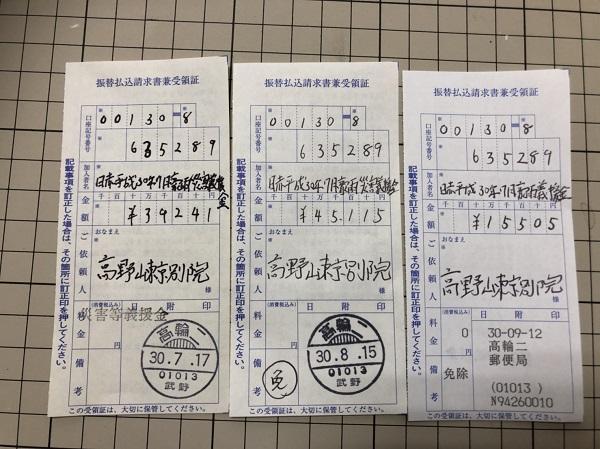 振替払込請求書兼受領証
口座記号番号
00130-8
635289
加入者名
日赤平成30年7月豪雨災害義援金
金額
千百十万千百十円
¥39241
ご依頼人
おなまえ
高野山東京別院
様
料金
(消費税込み)
日附印
災害等義援金
高輪二
30.7.17
01013
武野
備考
記載事項を訂正した場合は、その箇所に訂正印を押してください。
この受領証は、大切に保管してください。
振替払込請求書兼受領証
口座記号番号
00130-8
635289
加入者名
日赤平成30年7月豪雨災害義援金
金額
千百十万千百十円
¥45115
ご依頼人
おなまえ
高野山東京別院
様
料金
(消費税込み)
日附印
高輪二
30.8.15
01013
武野
備考
免
記載事項を訂正した場合は、その箇所に訂正印を押してください。
この受領証は、大切に保管してください。
振替払込請求書兼受領証
口座記号番号
00130-8
635289
加入者名
日赤平成30年7月豪雨義援金
金額
千百十万千百十円
¥15505
ご依頼人
おなまえ
高野山東京別院
様
料金
(消費税込み)
0
円
日附印
30-09-12
高輪二
郵便局
備考
免除
(01013)
N94260010
記載事項を訂正した場合は、その箇所に訂正印を押してください。
この受領証は、大切に保管してください。